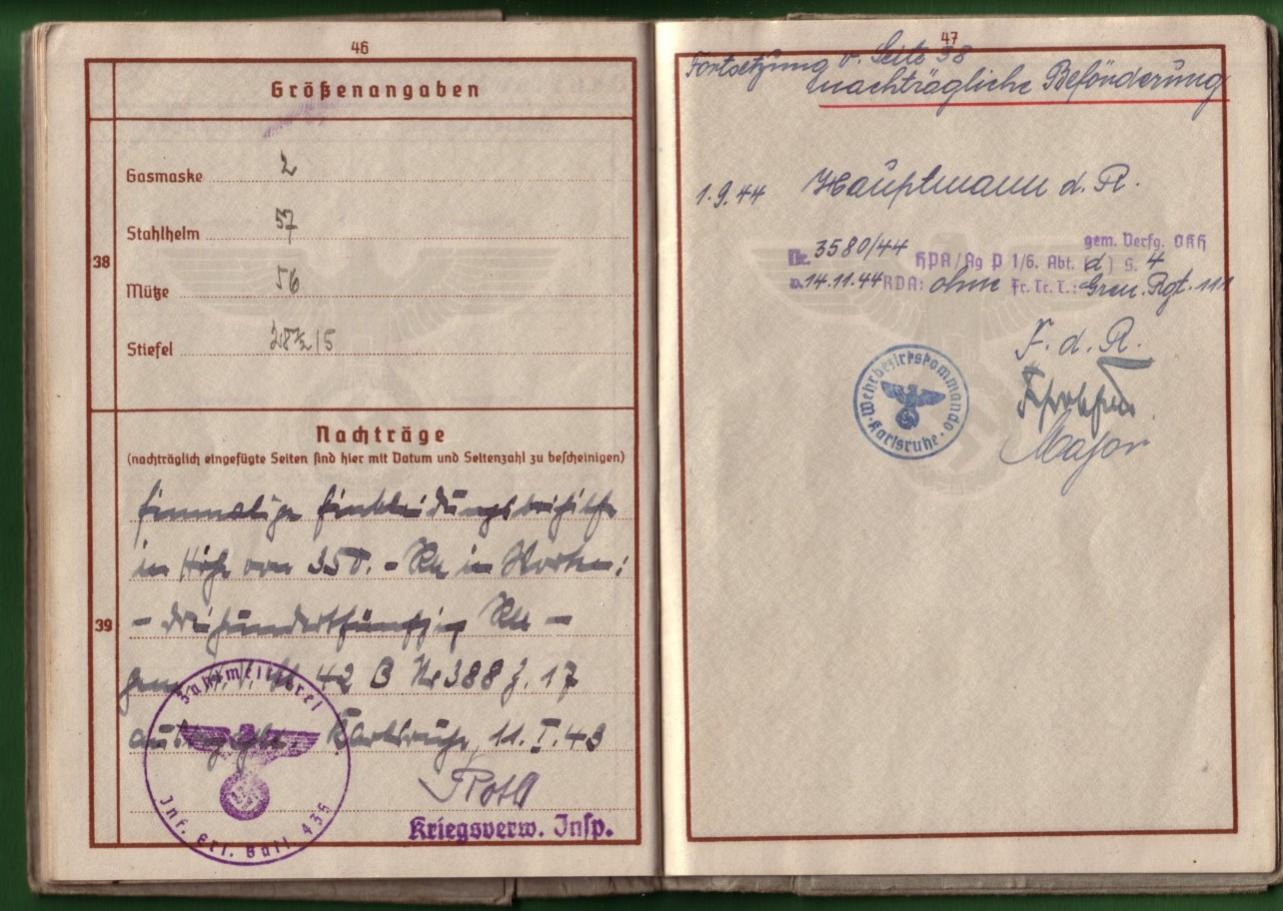 46
Größenangaben
38
Gasmaske 2
Stahlhelm 57
Mütze 56
Stiefel 28½/5
Nachträge
(nachträglich eingefügte Seiten sind hier mit Datum und Seitenzahl zu bescheinigen)
39
Einmalige Einkleidungsbeihilfe
in Höhe von 350.- RM in Worten:
- dreihundertfünfzig RM -
gem. 42 B Nr 388 Z. 17
ausgezahlt. Karlsruhe, 11.I.43
Zahlmeisterei
Inf. Ers. Batl. 435
Roth
Kriegsverw. Insp.
47
Fortsetzung v. Seite 38
nachträgliche Beförderung
1.9.44 Hauptmann d. R.
gem. Verfg. OKH
Nr. 3580/44 HPA/Ag P 1/6. Abt. (d) S. 4
v. 14.11.44 RDA: ohne Fr. Tr. T.: Gren. Rgt. 111
F. d. R.
Wehrbezirkskommando
Karlsruhe
Major